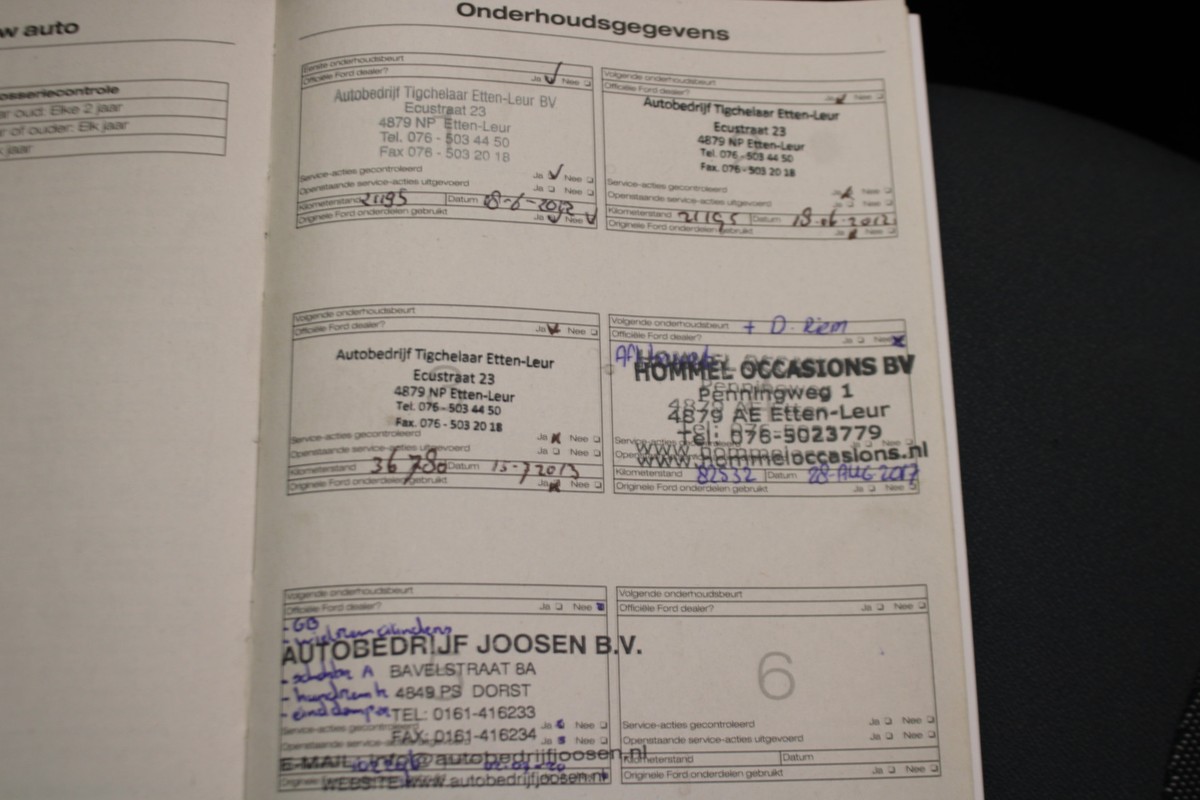 w auto
osseriecontrole
ar oud: Elke 2 jaar
r of ouder: Elk jaar
jaar
Onderhoudsgegevens
Eerste onderhoudsbeurt
Officiële Ford dealer? Ja Nee
Autobedrijf Tigchelaar Etten-Leur BV
Ecustraat 23
4879 NP Etten-Leur
Tel. 076 - 503 44 50
Fax 076 - 503 20 18
Service-acties gecontroleerd Ja Nee
Openstaande service-acties uitgevoerd Ja Nee
Kilometerstand 21195 Datum 18-6-2012
Originele Ford onderdelen gebruikt Ja Nee
Volgende onderhoudsbeurt
Officiële Ford dealer? Ja Nee
Autobedrijf Tigchelaar Etten-Leur
Ecustraat 23
4879 NP Etten-Leur
Tel. 076 - 503 44 50
Fax. 076 - 503 20 18
Service-acties gecontroleerd Ja Nee
Openstaande service-acties uitgevoerd Ja Nee
Kilometerstand 21195 Datum 18-06-2012
Originele Ford onderdelen gebruikt Ja Nee
Volgende onderhoudsbeurt
Officiële Ford dealer? Ja Nee
Autobedrijf Tigchelaar Etten-Leur
Ecustraat 23
4879 NP Etten-Leur
Tel. 076 - 503 44 50
Fax. 076 - 503 20 18
Service-acties gecontroleerd Ja Nee
Openstaande service-acties uitgevoerd Ja Nee
Kilometerstand 36780 Datum 15-7-2013
Originele Ford onderdelen gebruikt Ja Nee
Volgende onderhoudsbeurt + D. Riem
Officiële Ford dealer? Ja Nee
HOMMEL OCCASIONS BV
Penningweg 1
4879 AE Etten-Leur
Tel: 076-5023779
www.hommeloccasions.nl
Kilometerstand 82532 Datum 28-AUG-2017
Originele Ford onderdelen gebruikt Ja Nee
Volgende onderhoudsbeurt
Officiële Ford dealer? Ja Nee
- GB
- wielremcilinders
AUTOBEDRIJF JOOSEN B.V.
BAVELSTRAAT 8A
- handrem
4849 PS DORST
- einddemper
TEL: 0161-416233
Service-acties gecontroleerd Ja Nee
FAX: 0161-416234
Ja Nee
E-MAIL: @autobedrijfjoosen.nl
WEBSITE: www.autobedrijfjoosen.nl
Volgende onderhoudsbeurt
Officiële Ford dealer? Ja Nee
6
Service-acties gecontroleerd Ja Nee
Openstaande service-acties uitgevoerd Ja Nee
Kilometerstand Datum
Originele Ford onderdelen gebruikt Ja Nee